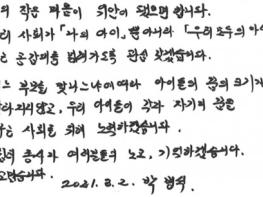 의 작은 마음이 위안이 됐으면 합니다.
리 사회가 「나의 아이」뿐 아니라 「우리 모두의 아
는 공감대를 넓혀가도록 관심 갖겠습니다.
느 부모를 만나느냐에 따라 아이들의 꿈의 크기가
라지지 않고, 우리 아이들이 각자 자기의 꿈을
는 사회를 위해 노력하겠습니다.
의 총사와 여러분들의 노고, 기억하겠습니다.
고맙습니다.
2021. 3. 2. 박 범계